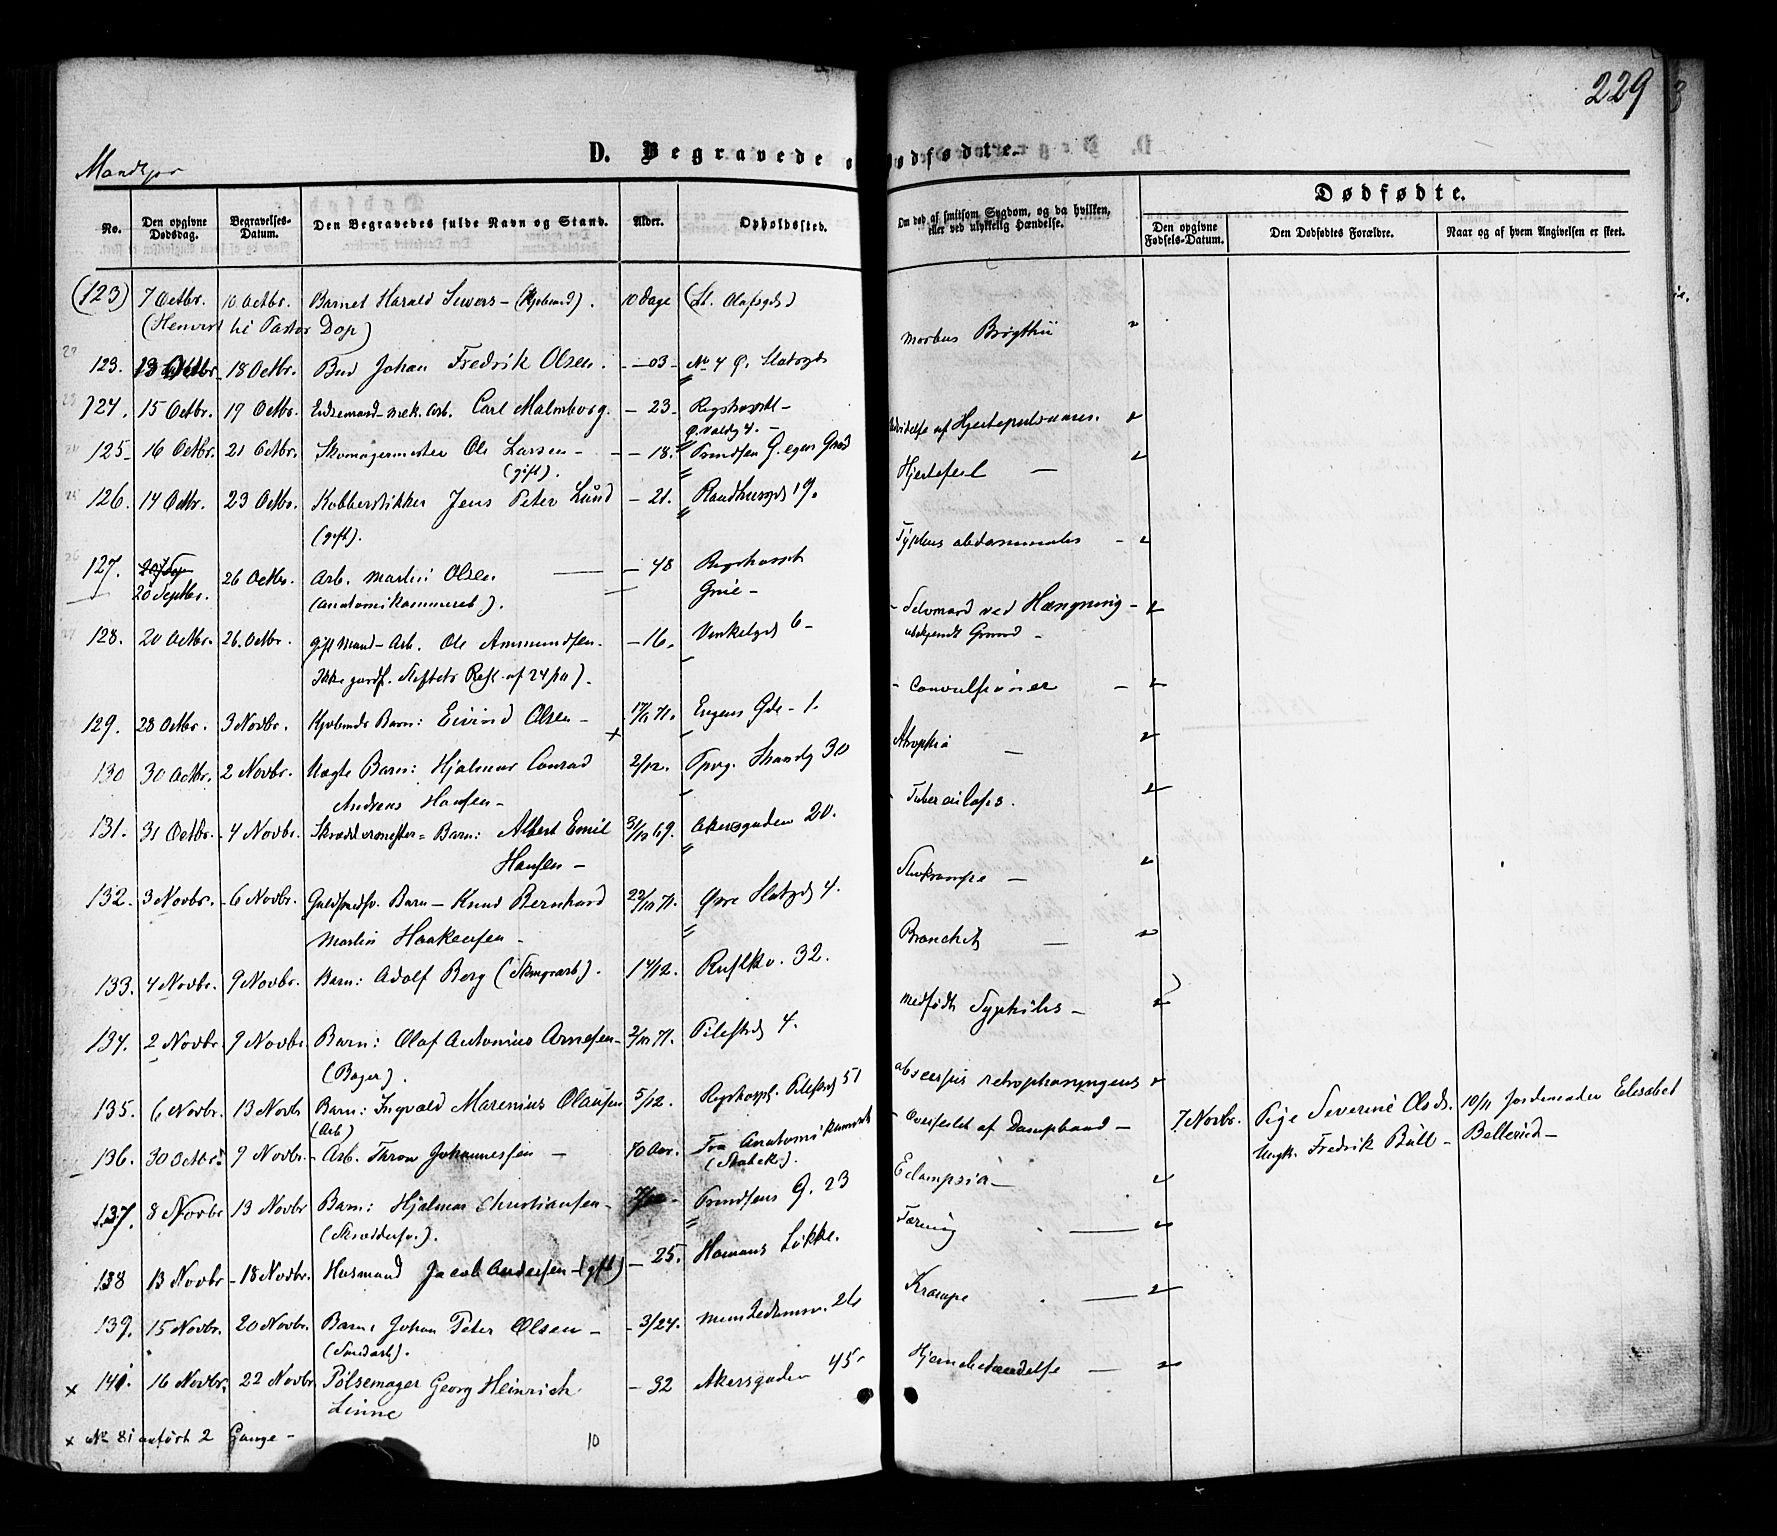 229
Mandkjøn
D. Begravede o
Dødfødtre.
No.
Den opgivne Dødsdag.
Begravelses-Datum.
Den Begravedes fulde Navn og Stand.
Alder.
Opholdssted.
Om død af smitsom Sygdom, og da hvilken, eller ved ulykkelig Hændelse.
Dødfødte.
Den opgivne Fødsels-Datum.
Den Dødfødtes Forældre.
Naar og af hvem Angivelsen er skeet.
(123) 7 Octbr. 10 Octbr. Barnet Harald Siwers - (Kjøbmd). 10 Dage (St. Olafsgd)
(Henvist til Pastor Dop)
morbus Brigthii
123. 13 Octbr. 18 Octbr. Bud Johan Fredrik Olsen. -03- No 4 Ø. Slotsgd
124. 15 Octbr. 19 Octbr. Enkemand mek. Arb. Carl Malmborg. - 23. Rigshospitl -
Ø. Voldg 4. -
af Hjertepulsaares.
125 16 Octbr. 21 Octbr. Skomagermester Ole Larsen - - 18. Prindsen G. egen Grd
(gift).
Hjertefeil -
126. 14 Octbr. 23 Octbr. Kobberstikker Jens Peter Lund - 21. Raadhusgd 19.
(gift).
Typhus abdominalis -
127. 20 Septbr. 26 Octbr. Arb. Martin Olsen - 48 Rigshospit
(Anatomikammeret). Grue -
- Selvmord ved Hængning -
ubekjendt Grund -
128. 20 Octbr. 26. Octbr. gift Mand - Arb. Ole Ammundsen - - 16. Vinkelgd 6 -
Ikke jordf. Stiftets Resl. af 24/10).
- Convulsioner -
129. 28 Octbr. 3 Novbr. Kjøbmds Barn: Eivind Olsen - 71. Engens Gde - 1.
Atrophia -
130 30 Octbr. 2 Novbr. Uægte Barn: Hjalmar Conrad 2/12. Tpvg. Strandg 30
Andreas Hansen -
- Tuberculosis.
131. 31 Octbr. - 4 Novbr. Skræddermester - Barn: Albert Emil 3/12 69. Akersgaden 20.
Hansen -
Stivkrampe -
132. 3 Novbr. - 6 Novbr. Guldsmedsv. Barn - Knud Bernhard 22/10 71. Øvre Slotsgd 4.
Martin Haakensen -
Bronchit -
133. 4 Novbr. 9 Novbr. Barn: Adolf Berg (Stengrarb). 1 4/12. Rusløkv. 32.
medfødt Syphilis -
134. 2 Novbr. 9 Novbr Barn: Olaf Antonius Arnesen - 2/10 71. Pilestrd 4.
(Bager).
abscessus retropharyngeus
135. 6 Novbr. 13 Novbr Barn: Ingvald Marenius Olausen 5/12. Rigshospl. Pilestrd 51
(Arb)
- Overfaldt af Dampbaad -
7 Novbr. Pige Severine Olsdr. 10/11 Jordemoder Elisabet
Ungk. Fredrik Bull - Bellerud -
136. 30 Octbr. 9 Novbr. - Arb. Thron Johannesen - 70 Aar. Fra Anatomikamret
Eclampsia -
137. 8 Novbr 13 Novbr Barn: Hjalmar Christiansen - Prindsens G. 23
(Skræddersv.).
Tæring -
138 13 Novbr - 18 Novbr. Husmand Jacob Andersen - (gift) - 25. Homans Løkke.
Krampe -
139. 15 Novbr. 20 Novbr. Barn: Johan Peter Olsen - - 3/24. Munkedamsv. 26
Hjernebetændelse -
x 141. 16 Novbr. 22 Novbr. Pølsemager Georg Heinrich - 32 Akersgaden 45
Linne
x No 81 anført 2 Gange -
10